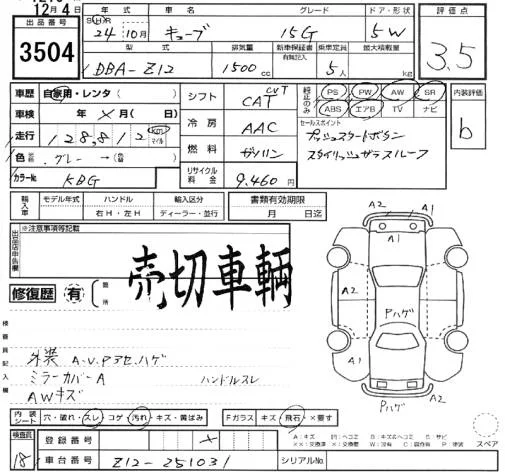 12月4日
出品番号
3504
年式 車名 グレード ドア・形状
SHR 24年10月 キューブ 15G 5W
型式 排気量 新車保証書 有無記入 乗車定員 最大積載量
DBA-Z12 1500cc 5人 kg
評価点
3.5
車歴 自家用・レンタ ( )
車検 年 月( 日)
走行 128,812 km マイル
色 グレー → (色替)
カラーNo. KBG
シフト CAT CVT
冷房 AAC
燃料 ガソリン
リサイクル料金 9,460円
純正のみ PS PW AW SR
ABS エアB TV ナビ
セールスポイント
プッシュスタートボタン
スタイリッシュガラスルーフ
内装評価
b
輸入車 モデル年式 ハンドル 輸入区分
右H・左H ディーラー・並行
書類有効期限
月 日迄
出品店申告欄
※注意事項等記載
売切車輌
修復歴 有 箇所
検査員記入欄
外装 A.U.Pアセ.ハゲ
ミラーカバーA ハンドルスレ
AWキズ
A2 A1
A1
A2
A2
Pハゲ
A1
Pハゲ
内装シート 穴・破れ・スレ コゲ・汚れ・キズ・黄ばみ
Fガラス キズ・飛石・×要す
A:キズ U:ヘコミ B:キズ&ヘコミ S:サビ
××:交換済 ×:要交換 W:波有 C:腐食有 P:塗装
スペア
検査員 18
登録番号 ×
車台番号 Z12-251031
シリアルNo.